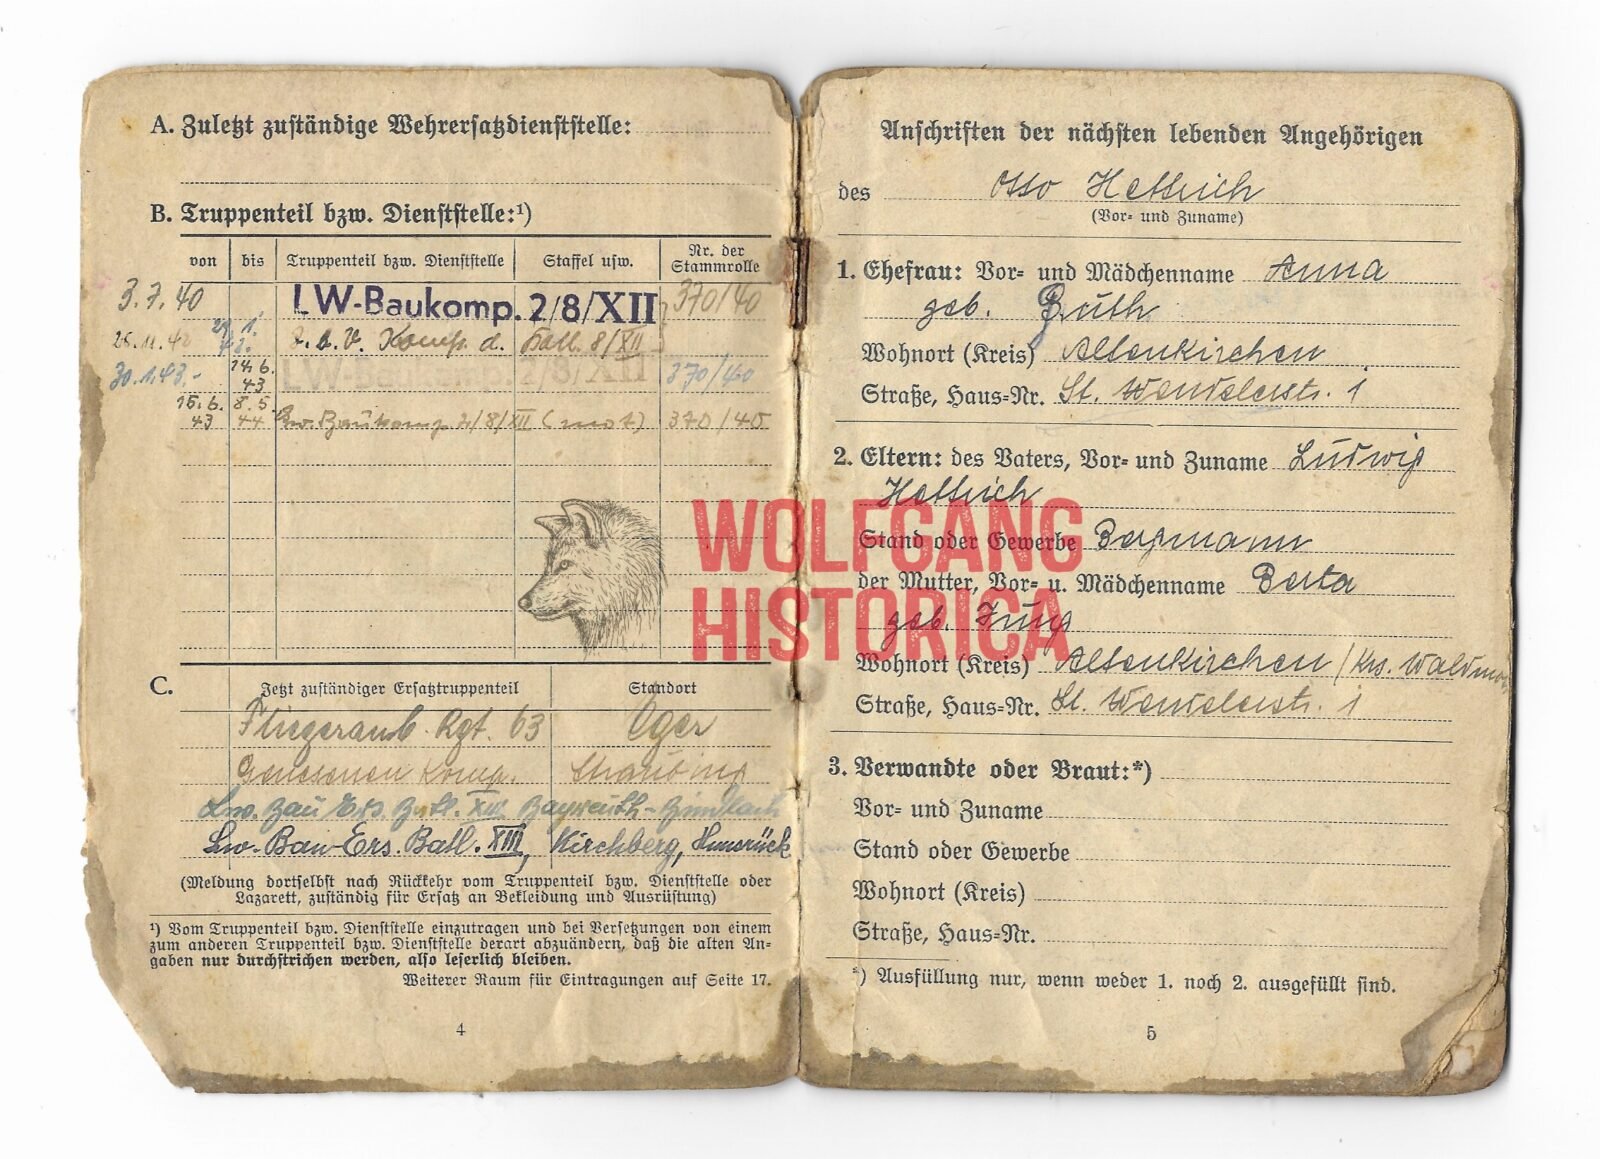 A. Zuletzt zuständige Wehrersatzdienststelle:
B. Truppenteil bzw. Dienststelle:¹)
von bis Truppenteil bzw. Dienststelle Staffel usw. Nr. der Stammrolle
3.7.40 LW-Baukomp. 2/8/XII 370/40
z.b.V. Komp. d. Batl. 8/XII
30.1.43.- 14.6.43 LW-Baukomp. 2/8/XII 370/40
15.6.43 8.5.44 Lw. Baukomp. 2/8/XII (mot) 370/40
C. Jetzt zuständiger Ersatztruppenteil Standort
Fliegerausb. Rgt. 63 Eger
Genesenen Komp. Straubing
Lw. Bau Ers. Batl. XII Bayreuth-Bindlach
Lw.-Bau-Ers. Batl. XIII, Kirchberg, Hunsrück
(Meldung dortselbst nach Rückkehr vom Truppenteil bzw. Dienststelle oder
Lazarett, zuständig für Ersatz an Bekleidung und Ausrüstung)
¹) Vom Truppenteil bzw. Dienststelle einzutragen und bei Versetzungen von einem
zum anderen Truppenteil bzw. Dienststelle derart abzuändern, daß die alten An-
gaben nur durchstrichen werden, also leserlich bleiben.
Weiterer Raum für Eintragungen auf Seite 17.
4
Anschriften der nächsten lebenden Angehörigen
des Otto Hettrich
(Vor- und Zuname)
1. Ehefrau: Vor- und Mädchenname Anna
geb. Guth
Wohnort (Kreis) Altenkirchen
Straße, Haus-Nr. St. Wendelerstr. 1
2. Eltern: des Vaters, Vor- und Zuname Ludwig
Hettrich
Stand oder Gewerbe Bergmann
der Mutter, Vor- u. Mädchenname Berta
geb. Jung
Wohnort (Kreis) Altenkirchen / Krs. Waldmo
Straße, Haus-Nr. St. Wendelerstr. 1
3. Verwandte oder Braut:*)
Vor- und Zuname
Stand oder Gewerbe
Wohnort (Kreis)
Straße, Haus-Nr.
*) Ausfüllung nur, wenn weder 1. noch 2. ausgefüllt sind.
5
WOLFGANG
HISTORICA